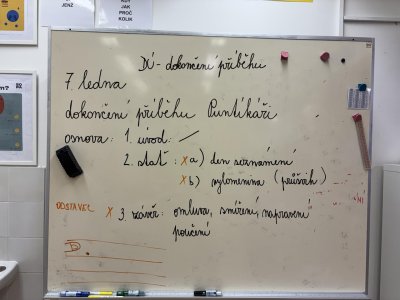 JENŽ
KDY
JAK
PROČ
KOLIK
DÚ - dokončení příběhu
7. ledna
dokončení příběhu Puntíkáři
osnova: 1. úvod: /
2. stať: x a) den seznámení
x b) vylomenina (průšvih)
ODSTAVEC x 3. závěr: omluva, smíření, napravení
poučení
D.